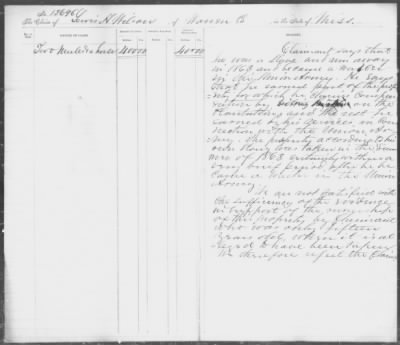 No. 13696
The Claim of Lewis H. Wilson of Warren Co in the State of Miss.
NATURE OF CLAIM.
REMARKS.
Two mules &
400 00
400 00
Claimant says that
he was a slave and ran away
in 1863 and became a
in the Union Army. He says
that he earned part of the prop-
erty for which he claims compen-
sation by on the
Plantation and the rest he
earned by his services in con-
nection with the Union Ar-
my. The property according to his
own story was taken in the sum-
mer of 1863 certainly within a
very brief period after he be-
came a in the Union
Army.
We are not satisfied with
the sufficiency of the evidence
in support of the ownership
of this property by claimant
who was only fifteen
years old, when it is al-
leged to have been taken.
We therefore reject the claim.